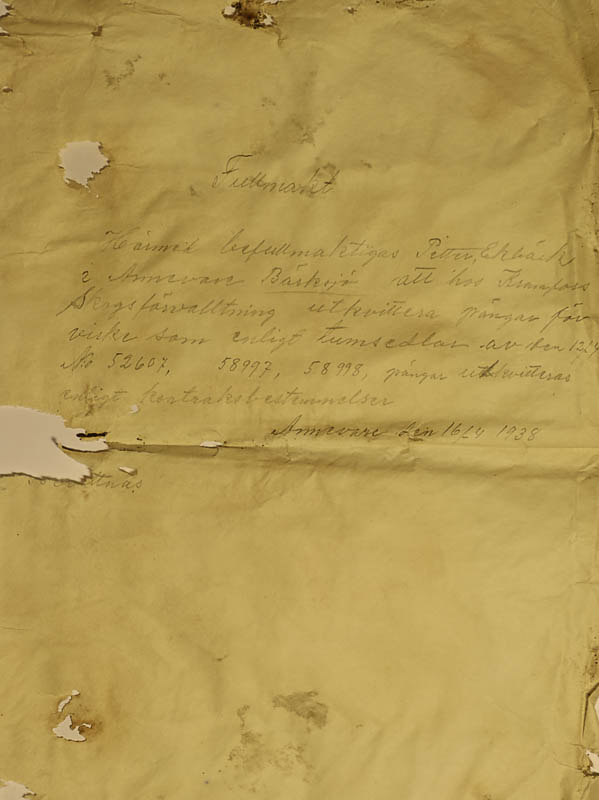 Fullmakt
Härmed befullmäktigas Petter Ekbäck
i Annevare Bäcksjö att hos Kramfors
Skogsförvalltning utkvittera pängar för
virke som enligt Tumsedlar av den 12/4
No 52607, 58997, 58998, pängar utkvitteras
enligt kontraksbestemmelser
Annevare den 16/4 1938